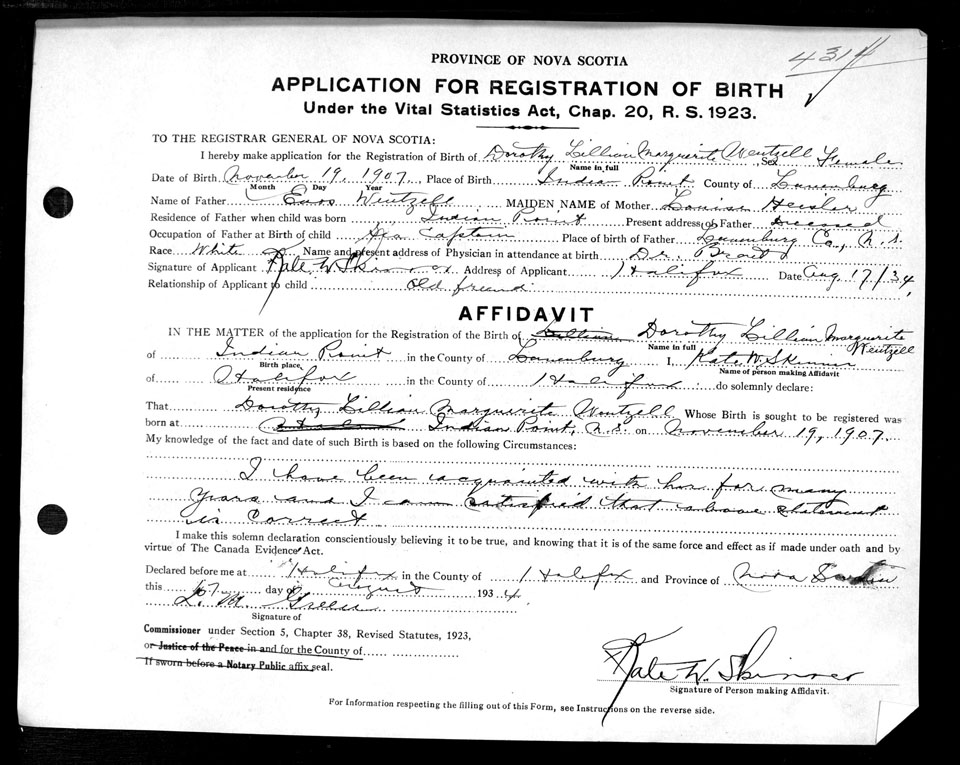 4314
PROVINCE OF NOVA SCOTIA
APPLICATION FOR REGISTRATION OF BIRTH
Under the Vital Statistics Act, Chap. 20, R. S. 1923.
TO THE REGISTRAR GENERAL OF NOVA SCOTIA:
I hereby make application for the Registration of Birth of Dorothy Lillian Marguerite Wentzell Sex Female
Name in full
Date of Birth November 19, 1907 Place of Birth Indian Point County of Lunenburg
Month Day Year
Name of Father Enos Wentzell MAIDEN NAME of Mother Louise Heisler
Residence of Father when child was born Indian Point Present address of Father Deceased
Occupation of Father at Birth of child Sea Captain Place of birth of Father Lunenburg Co., N.S.
Race White Name and present address of Physician in attendance at birth Dr.
Signature of Applicant Kate W. Skinner Address of Applicant Halifax Date Aug 17/34
Relationship of Applicant to child Old friend
AFFIDAVIT
IN THE MATTER of the application for the Registration of the Birth of Lillian Dorothy Lillian Marguerite Wentzell
Name in full
of Indian Point in the County of Lunenburg I, Kate W. Skinner
Birth place, Name of person making Affidavit
of Halifax in the County of Halifax do solemnly declare:
Present residence
That Dorothy Lillian Marguerite Wentzell Whose Birth is sought to be registered was
born at Indian Point, N.S. on November 19, 1907.
My knowledge of the fact and date of such Birth is based on the following Circumstances:
I have been acquainted with her for many
years and I am satisfied that above statement
is correct
I make this solemn declaration conscientiously believing it to be true, and knowing that it is of the same force and effect as if made under oath and by
virtue of The Canada Evidence Act.
Declared before me at Halifax in the County of Halifax and Province of Nova Scotia
this 17 day of August 1934
L. M.
Signature of
Commissioner under Section 5, Chapter 38, Revised Statutes, 1923,
or Justice of the Peace in and for the County of
If sworn before a Notary Public affix seal.
Kate W. Skinner
Signature of Person making Affidavit.
For Information respecting the filling out of this Form, see Instructions on the reverse side.